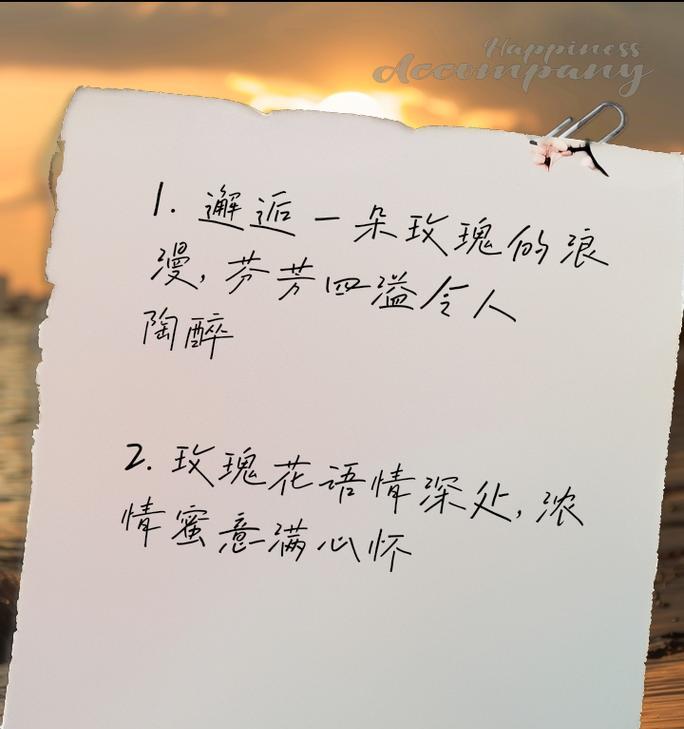 Happiness
Accompany
1. 邂逅一朵玫瑰的浪
漫,芬芳四溢令人
陶醉
2. 玫瑰花语情深处,浓
情蜜意满心怀